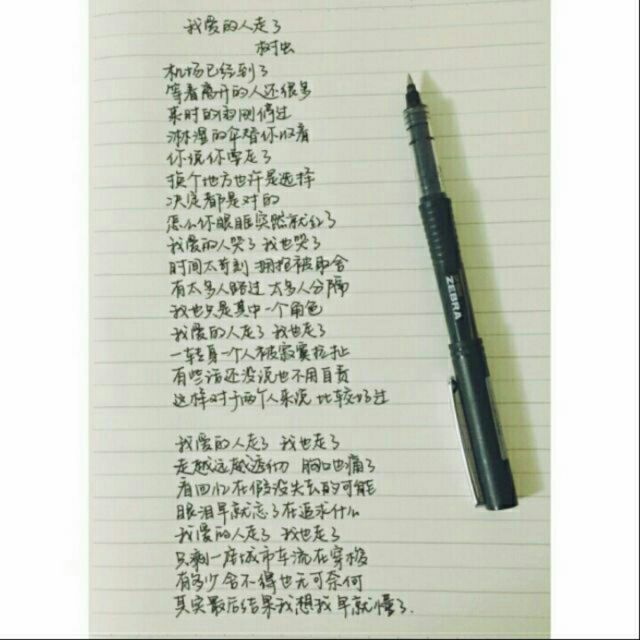 我爱的人走了
树虫
机场已经到了
等着离开的人还很多
来时的雨刚停过
淋湿的伞替你收着
你说你要走了
换个地方也许是选择
决定都是对的
怎么你眼眶突然就红了
我爱的人哭了 我也哭了
时间太苛刻 拥抱被取舍
有太多人路过 太多人分隔
我也只是其中一个角色
我爱的人走了 我也走了
一转身一个人被寂寞拉扯
有些话还没说也不用自责
这样对于两个人来说 比较好过
我爱的人走了 我也走了
走越远越透彻 胸口也痛了
看回忆在假设失去的可能
眼泪早就忘了在追求什么
我爱的人走了 我也走了
只剩一座城市车流在穿梭
有多少舍不得也无可奈何
其实最后结果我想我早就懂了.
ZEBRA